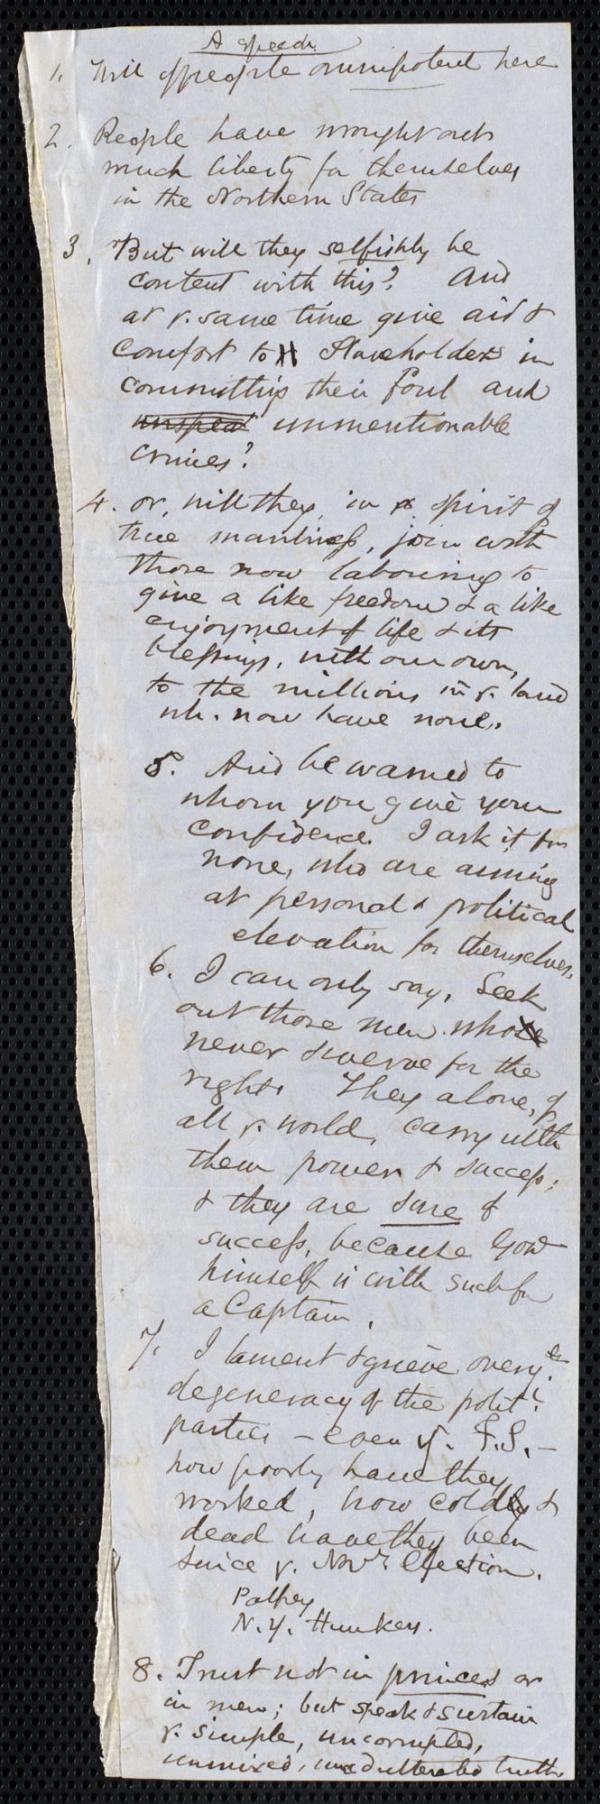 A speech.
1. Will of people omnipotent here
2. People have wrought out
much liberty for themselves
in the Northern States
3. But will they selfishly be
content with this? And
at y. same time give aid &
comfort to Slaveholders in
committing their foul and
unmentionable
crimes?
4. or, will they, in a spirit of
true manliness, join with
those now labouring to
give a like freedom & a like
enjoyment of life & its
blessings, with our own,
to the millions in y. land
wh. now have none.
5. And be warned to
whom you give your
confidence. I ask it for
none, who are aiming
at personal & political
elevation for themselves.
6. I can only say, Seek
out those men who
never swerve for the
right. They alone, of
all y. world, carry with
them power & success;
& they are sure of
success, because God
himself is with such for
a Captain.
7. I lament & grieve over y.
degeneracy of the polit:
parties – even y. F.S. –
how poorly have they
worked, how coldly &
dead have they been
since y. Novr. Election.
Palfrey
N.Y. Hunkers.
8. Trust not in princes or
in men; but speak & sustain
y. simple, uncorrupted,
unmixed, unadulterated truth